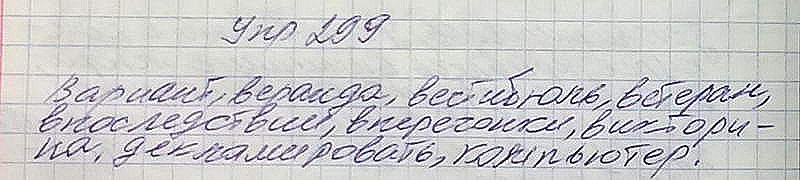 Упр 299
Вариант, веранда, вестибюль, ветеран,
впоследствии, вперегонки, виктори-
на, декламировать, компьютер.